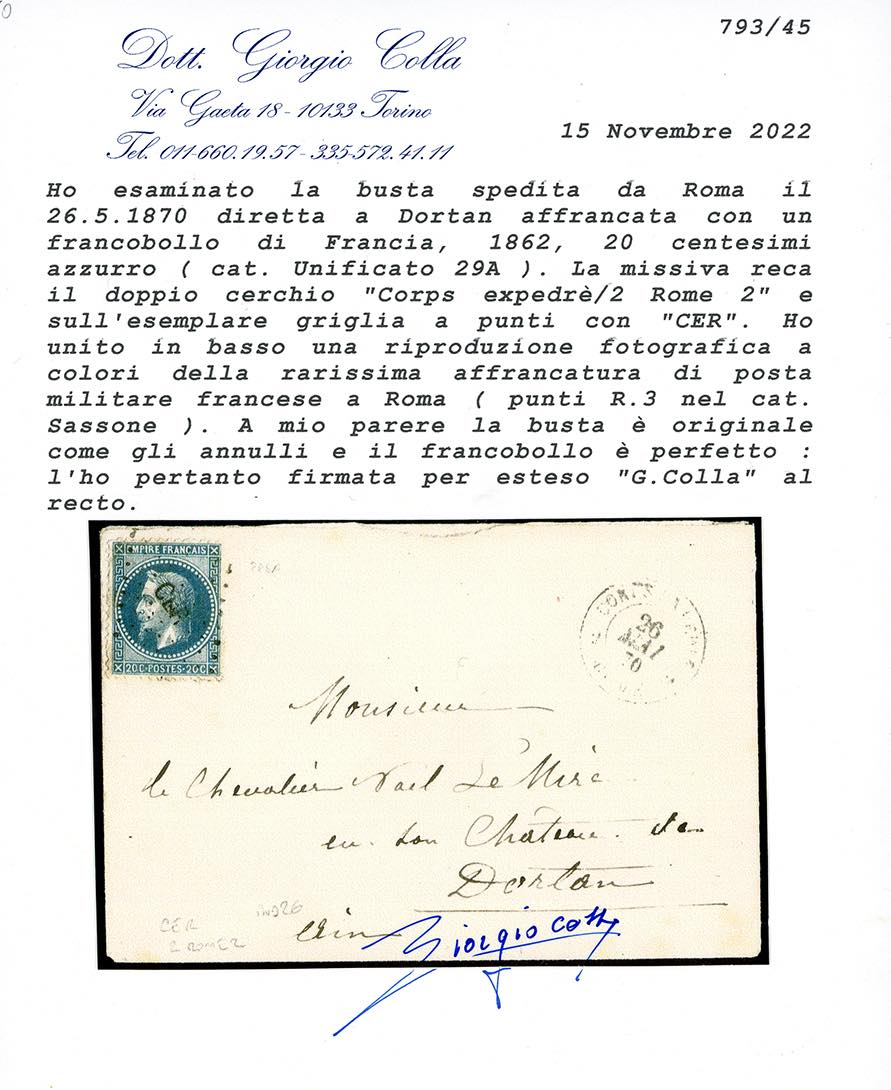 793/45
Dott. Giorgio Colla
Via Gaeta 18 - 10133 Torino
Tel. 011-660.19.57 - 335-572.41.11
15 Novembre 2022
Ho esaminato la busta spedita da Roma il
26.5.1870 diretta a Dortan affrancata con un
francobollo di Francia, 1862, 20 centesimi
azzurro ( cat. Unificato 29A ). La missiva reca
il doppio cerchio "Corps expedrè/2 Rome 2" e
sull'esemplare griglia a punti con "CER". Ho
unito in basso una riproduzione fotografica a
colori della rarissima affrancatura di posta
militare francese a Roma ( punti R.3 nel cat.
Sassone ). A mio parere la busta è originale
come gli annulli e il francobollo è perfetto :
l'ho pertanto firmata per esteso "G.Colla" al
recto.
EMPIRE FRANCAIS
20C·POSTES·20C
26
MAI
70
Monsieur
le Chevalier Noël Le Mire
en son Château de
Dortan
Ain
CER
2 ROME 2
Giorgio Colla